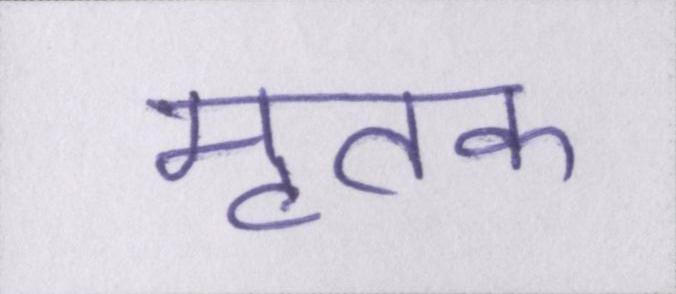 मृतक